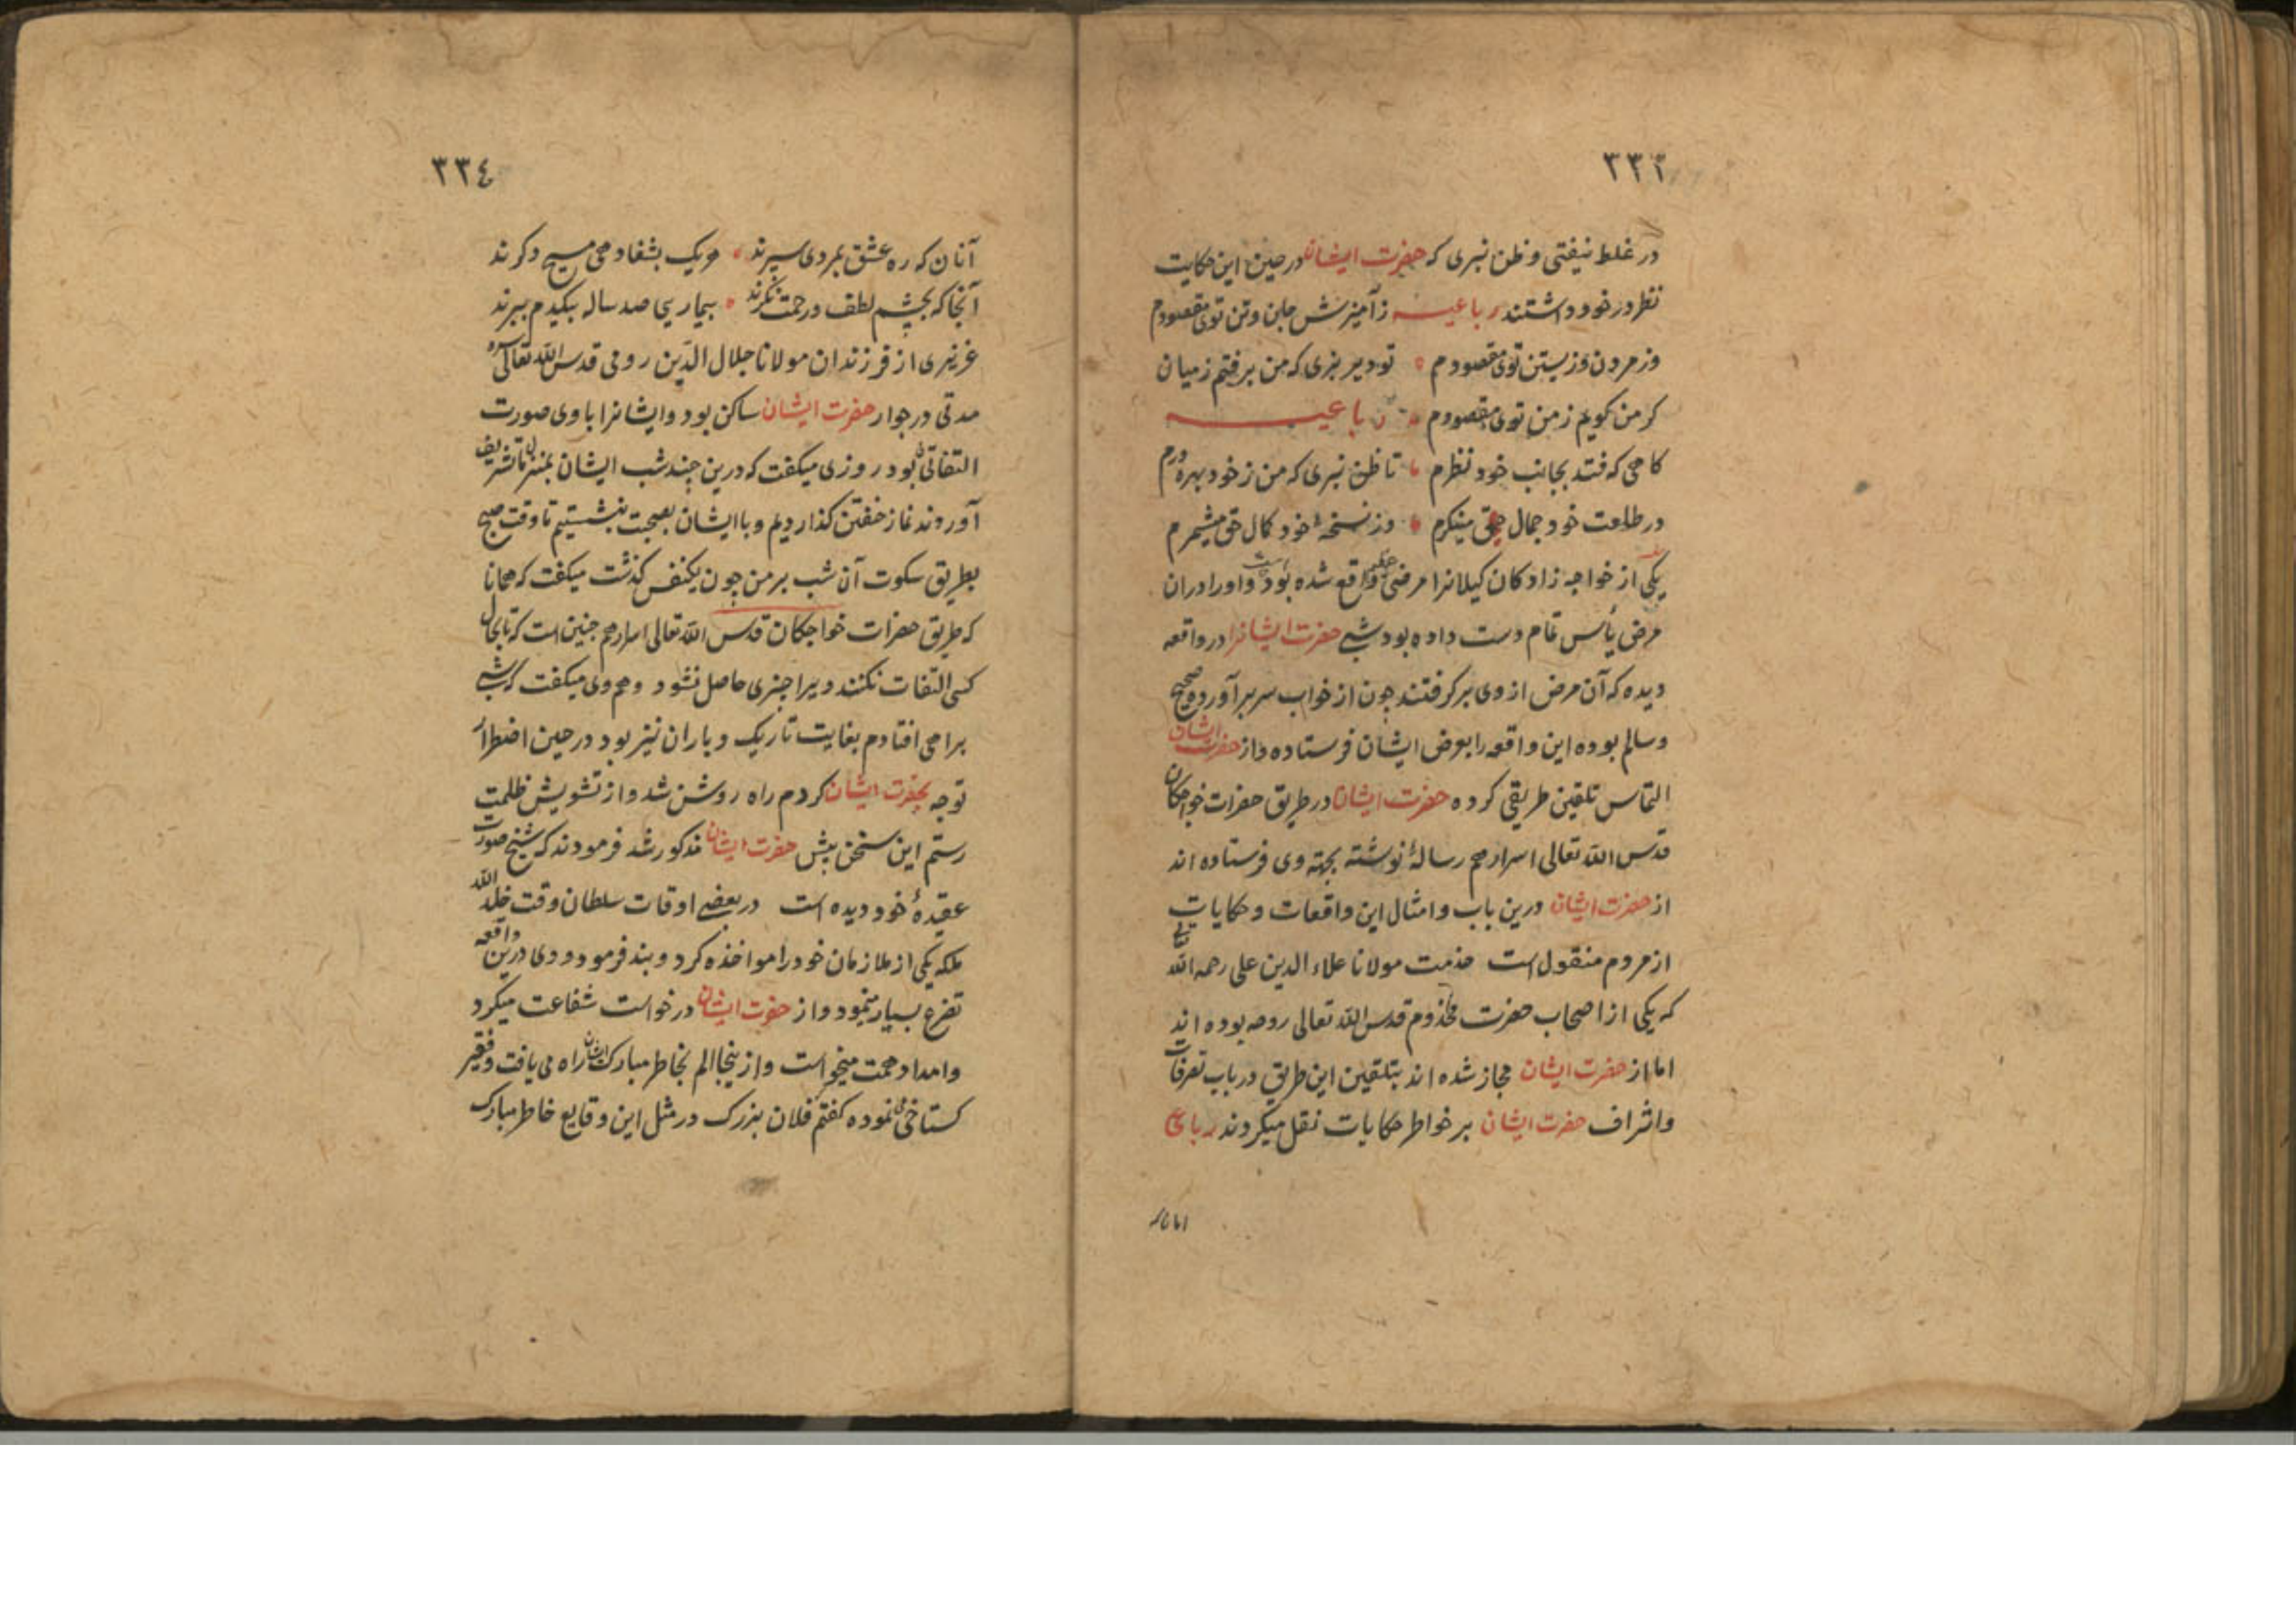 ٣٣٣
در غلط نیفتی و ظن نبری که حضرت ایشان در حین این حکایت
نظر در خود داشتند رباعیه ز آمیزش جان و تن توی مقصودم
وز مردن و زیستن توی مقصودم تو دیر بزی که من برفتم ز میان
کر من کویم ز من توی مقصودم رباعیه
کاهی که فتد بجانب خود نظرم تا ظن نبری که من ز خود بهره ورم
در طلعت خود جمال حق مینکرم وز نسخهٔ خود کمال حق میشمرم
یکی از خواجه زادکان کیلانرا مرضی عظیم واقع شده بود و اورا در ان
مرض یأس تمام دست داده بود شبی حضرت ایشانرا در واقعه
دیده که آن مرض از وی بر کرفتند چون از خواب سر بر آورده صحیح
و سالم بوده این واقعه را بعرض ایشان فرستاده و از حضرت ایشان
التماس تلقین طریقی کرده حضرت ایشان در طریق حضرات خواجکان
قدس الله تعالی اسرارهم رسالهٔ نوشته بجهته وی فرستاده اند
از حضرت ایشان درین باب و امثال این واقعات و حکایات
از مردم منقول است خدمت مولانا علاء الدین علی رحمه الله تعالی
که یکی از اصحاب حضرت مخدوم قدس الله تعالی روحه بوده اند
اما از حضرت ایشان مجاز شده اند بتلقین این طریق در باب تصرفات
و اشراف حضرت ایشان بر خواطر حکایات نقل میکردند رباعی
٣٣٤
آنان که ره عشق بمردی سپرند هر یک بشفا دهی مسیح دکرند
آنجا که بچشم لطف و رحمت نکرند بیماریی صد ساله بیکدم ببرند
عزیزی از فرزندان مولانا جلال الدین رومی قدس الله تعالی سره
مدتی در جوار حضرت ایشان ساکن بود و ایشانرا با وی صورت
التفاتی بود روزی میکفت که درین چند شب ایشان بمنزل ما تشریف
آوردند نماز خفتن کذاردیم و با ایشان بصحبت بنشستیم تا وقت صبح
بطریق سکوت آن شب بر من چون یکنفس کذشت میکفت که همانا
که طریق حضرات خواجکان قدس الله تعالی اسرارهم چنین است که تا بحال
کسی التفات نکنند ویرا چیزی حاصل نشود و هم وی میکفت که شبی
براهی افتادم بغایت تاریک و باران نیز بود در حین اضطرار
توجه بحضرت ایشان کردم راه روشن شد و از تشویش ظلمت
رستم این سخن پیش حضرت ایشان مذکور شد فرمودند که شیخ صورت
عقیدهٔ خود دیده است در بعضی اوقات سلطان وقت خلد الله
ملکه یکی از ملازمان خود را مواخذه کرد و بند فرمود و وی درین واقعه
تضرع بسیار مینمود و از حضرت ایشان درخواست شفاعت میکرد
و امداد همت میخواست و ازینجا الم بخاطر مبارک ایشان راه می یافت و فقیر
کستاخی نموده کفتم فلان بزرک در مثل این وقایع خاطر مبارک